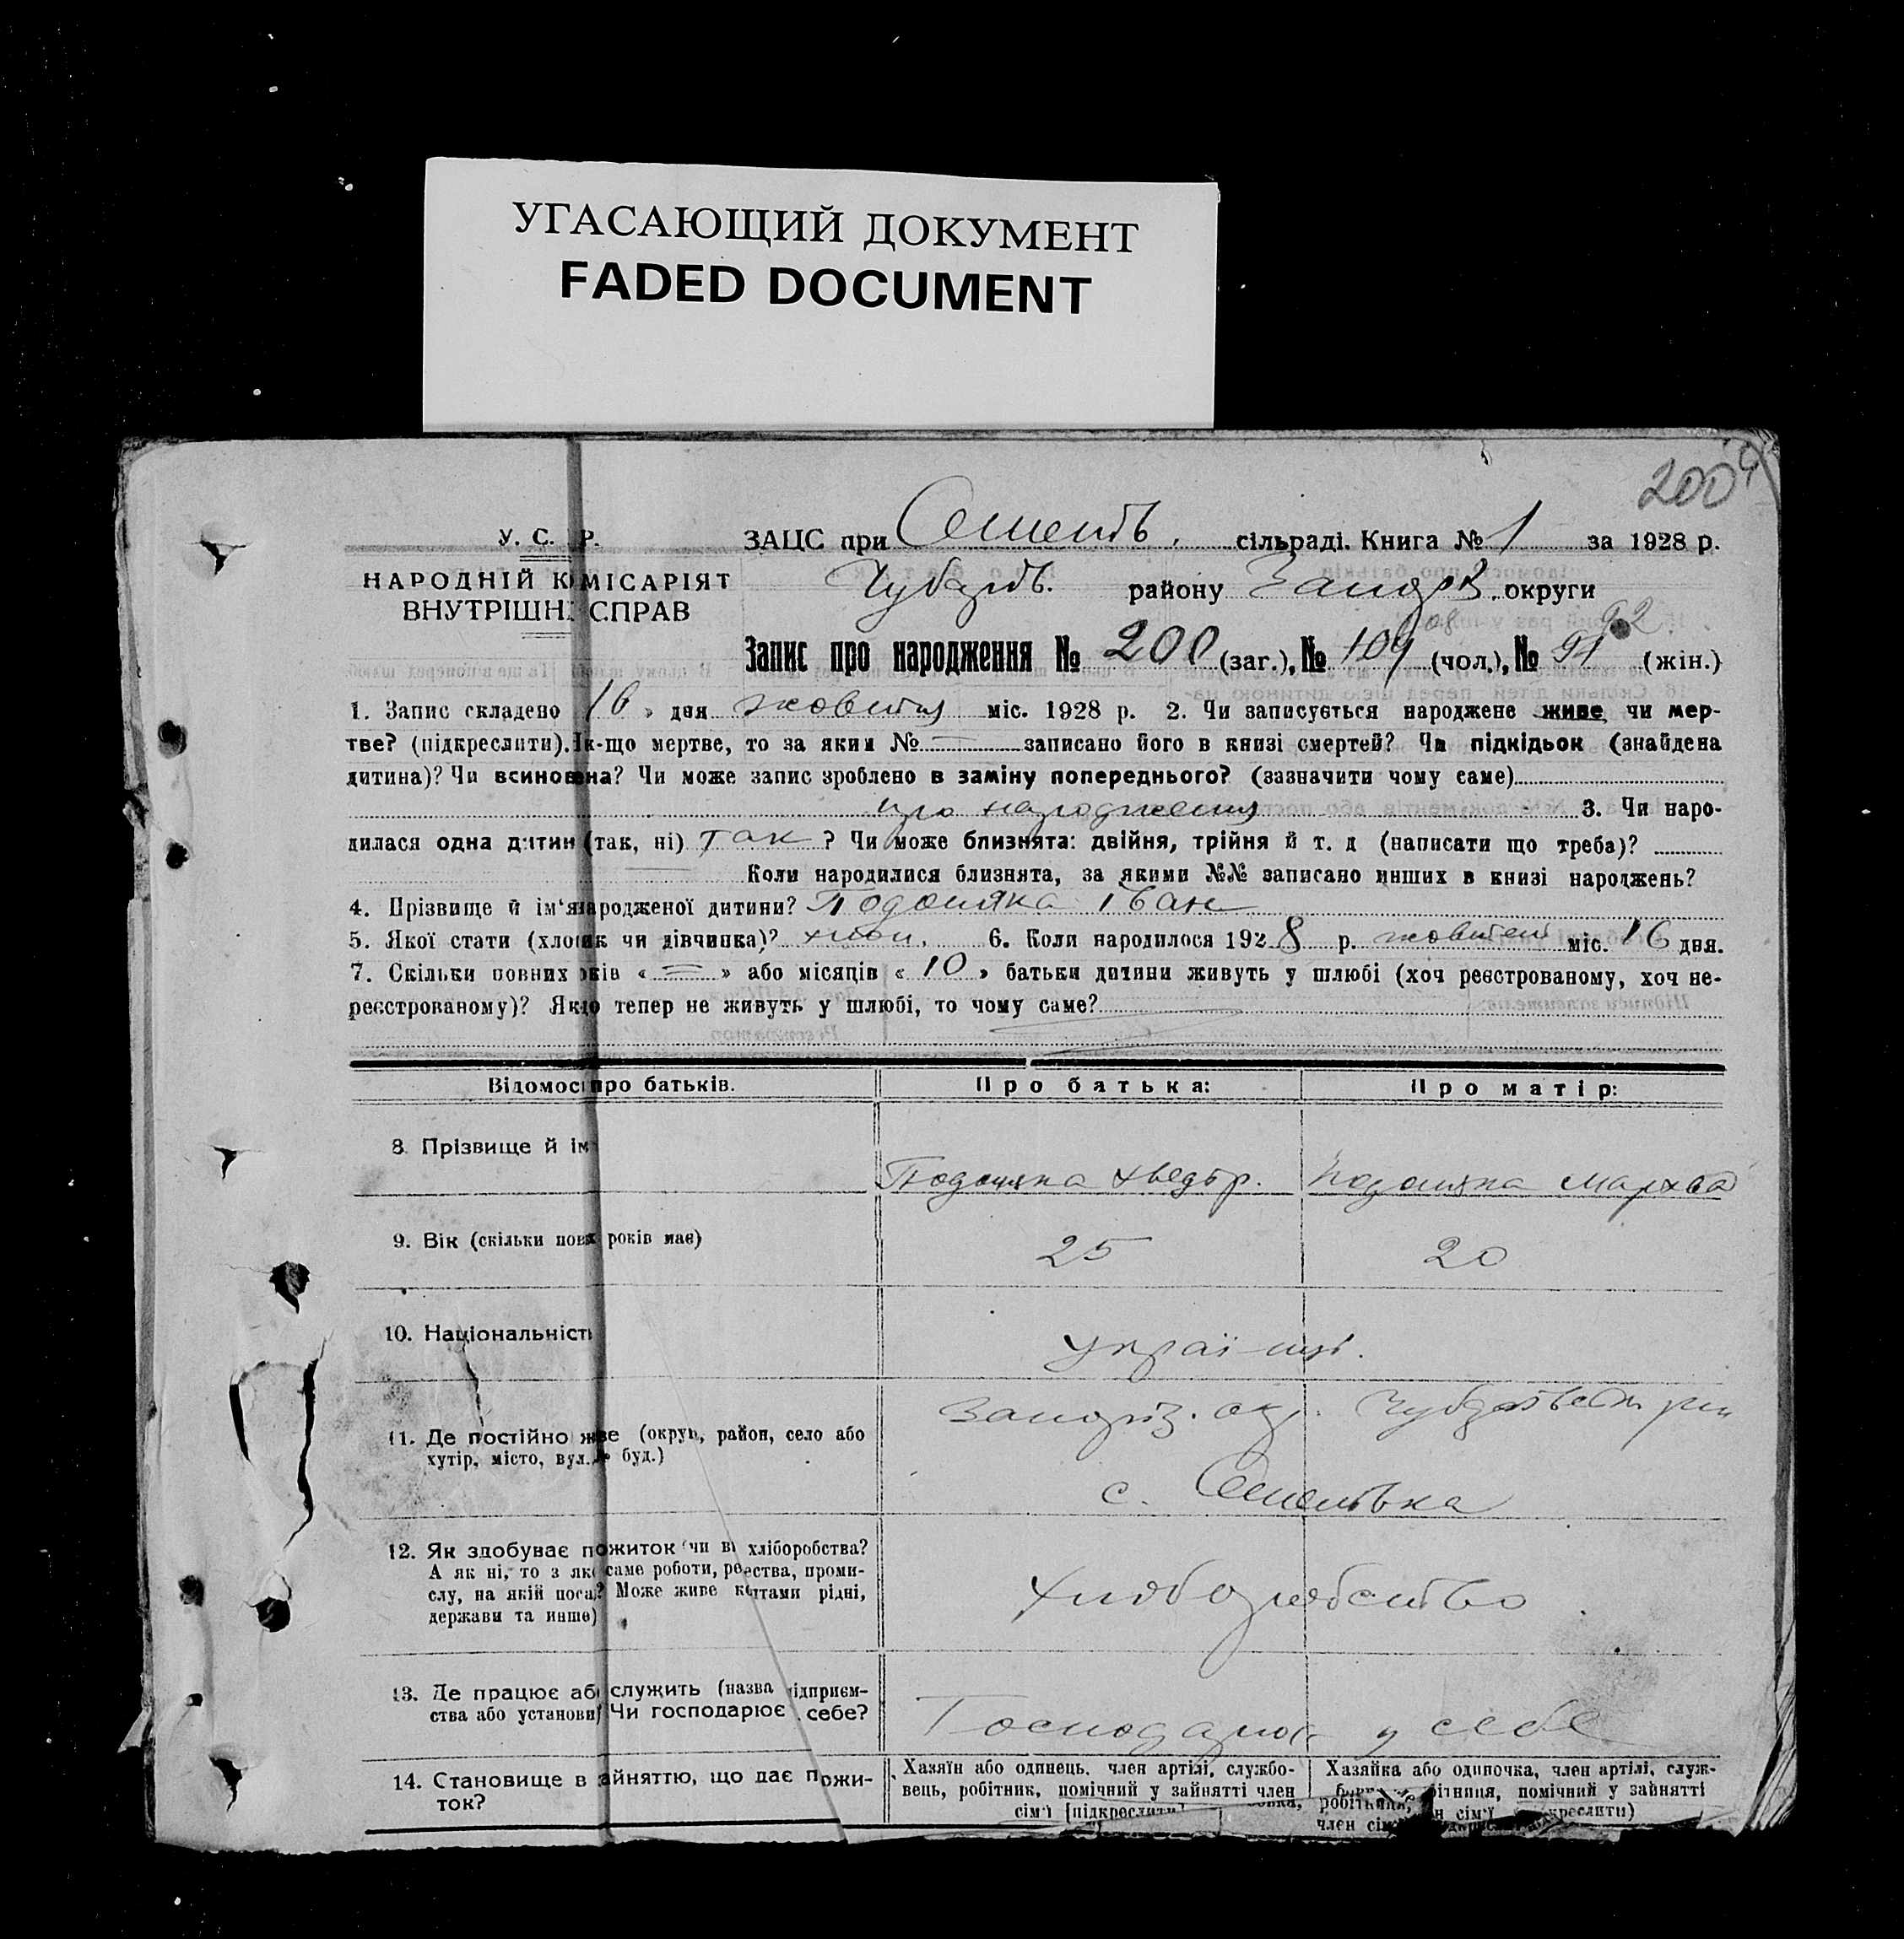 УГАСАЮЩИЙ ДОКУМЕНТ
FADED DOCUMENT
200
У. С. Р.
НАРОДНІЙ КОМІСАРІЯТ
ВНУТРІШН. СПРАВ
ЗАЦС при Семенів. сільраді. Книга № 1 за 1928 р.
Чубарів. району Запоріз. округи
Запис про народження № 200 (заг.), № 109 (чол.), № 91 (жін.)
08 92
1. Запис складено 16 » дня жовтня міс. 1928 р. 2. Чи записується народжене живе чи мер-
тве? (підкреслити). Як-що мертве, то за яким № — записано його в книзі смертей? Чи підкідьок (знайдена
дитина)? Чи всиновлена? Чи може запис зроблено в заміну попереднього? (зазначити чому саме)
про народження 3. Чи наро-
дилася одна дитин (так, ні) так ? Чи може близнята: двійня, трійня й т. д (написати що треба)?
— Коли народилися близнята, за якими №№ записано инших в книзі народжень?
4. Прізвище й ім'я народженої дитини? Подоляка Іван
5. Якої стати (хлопчик чи дівчинка)? хлоп. 6. Коли народилося 1928 р. жовтня міс. 16 дня.
7. Скільки повних років « — » або місяців « 10 » батьки дитини живуть у шлюбі (хоч реєстрованому, хоч не-
реєстрованому)? Якщо тепер не живуть у шлюбі, то чому саме?
Відомос про батьків. Про батька: Про матір:
8. Прізвище й ім Подоляка Хведір. Подоляка Мархва
9. Вік (скільки повн років має) 25 20
10. Національність україн.
11. Де постійно живе (округ, район, село або Запоріз. окр. Чубарівськ. рн
хутір, місто, вул. № буд.)
с. Семенівка
12. Як здобуває пожиток (чи ві хліборобства?
А як ні, то з яко саме роботи, ремества, проми-
слу, на якій поса? Може живе коштами рідні,
держави та инше)
хліборобство
13. Де працює або служить (назва підприєм-
ства або установи) Чи господарює у себе?
Господарює у себе
14. Становище в зайняттю, що дає пожи-
ток?
Хазяїн або одинець, член артілі, службо-
вець, робітник, помічний у зайнятті член
сім'ї [підкреслити]
Хазяйка або одиночка, член артілі, служ-
бітниця, помічний у зайнятті
робітник, н сім'ї креслити)
член сім